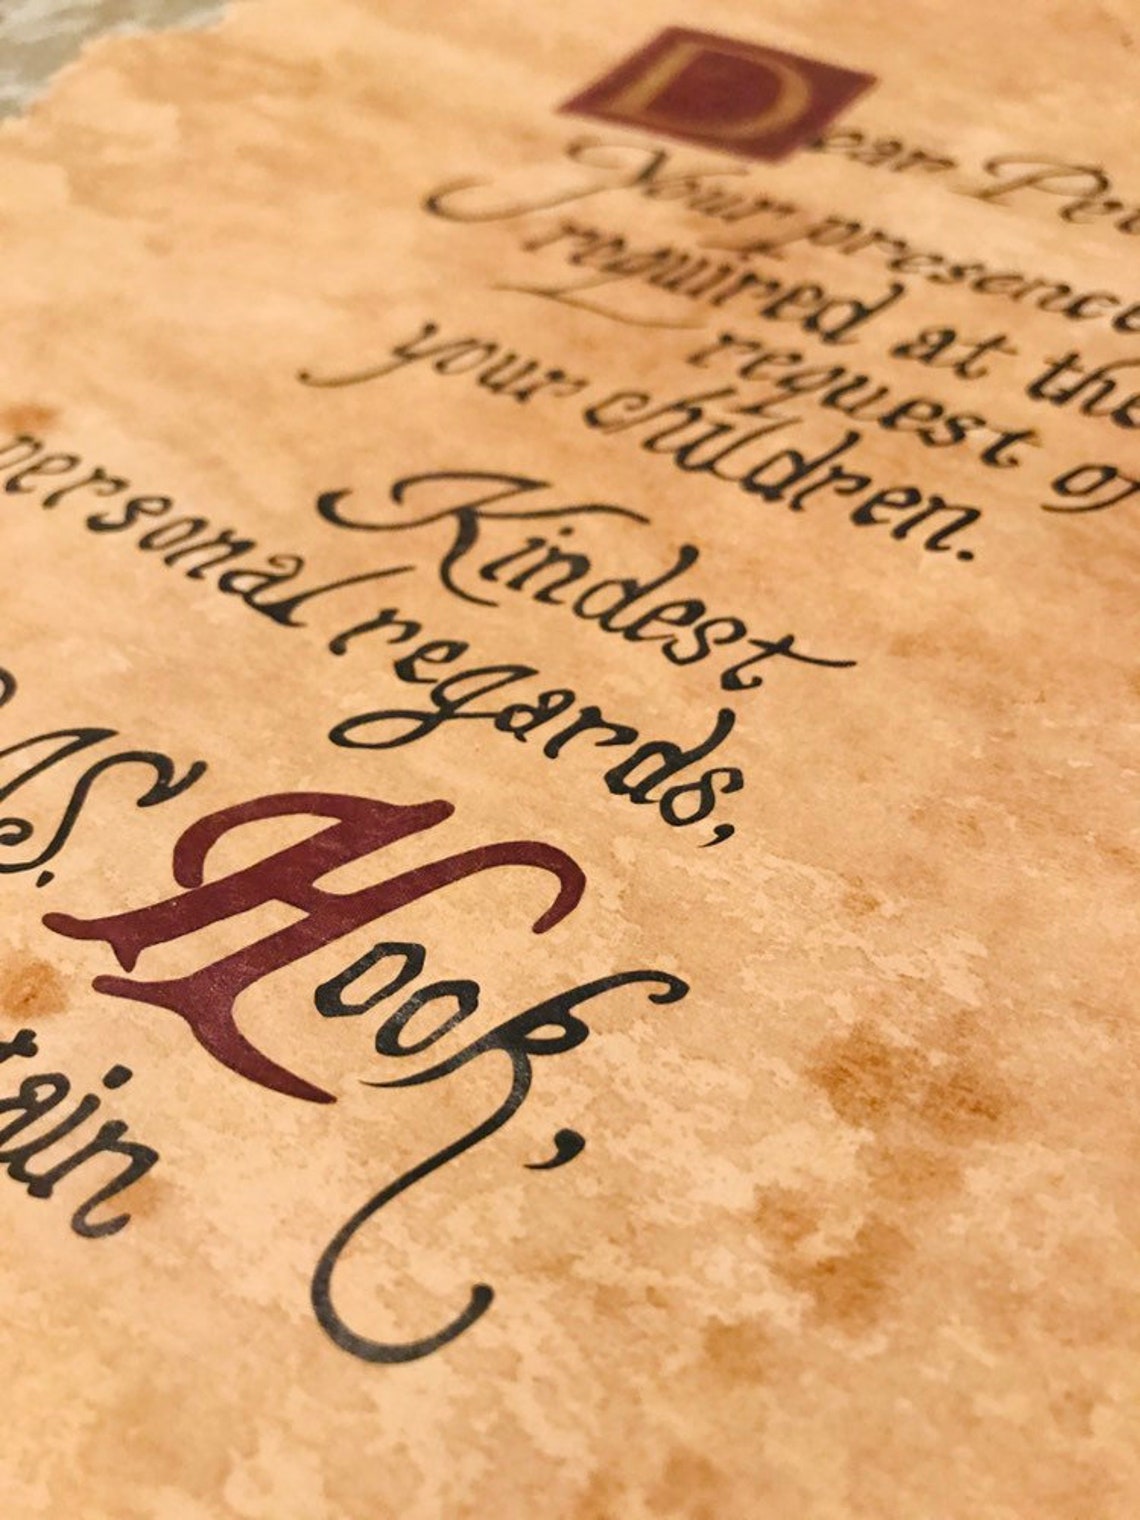 Dear Pet
Your presence
required at the
request of
your children.
Kindest
personal regards,
AS. Hook,
tain